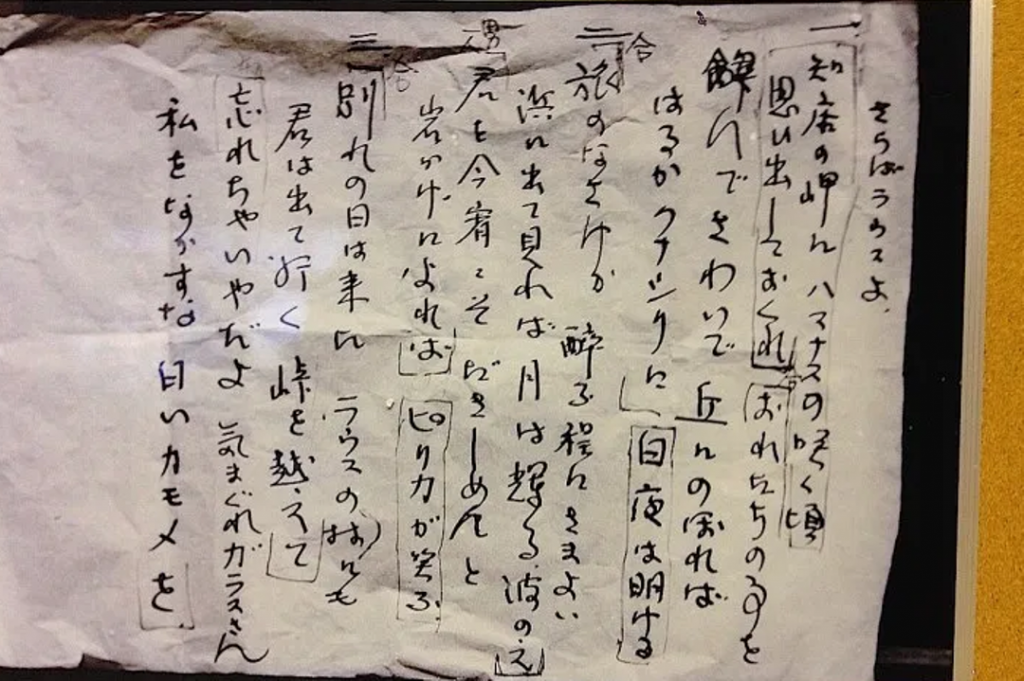 さらばラウスよ
一 知床の岬に ハマナスの咲く頃
思ひ出しておくれ 合 おれたちの事を
飲んでさわいで 丘にのぼれば
はるか クナシリに 白夜は明ける
合
二 旅のなさけか 酔ふ程にさまよい
浜に出て見れば 月は輝る 波の え
男
君を今宵こそ だきしめんと
岩かげによれば ピリカが笑ふ
合
三 別れの日は来た ラウスの村にも
君は出て行く 峠を越えて
忘れちゃいやだよ 気まぐれガラスさん
私をなかすな 白いカモメを